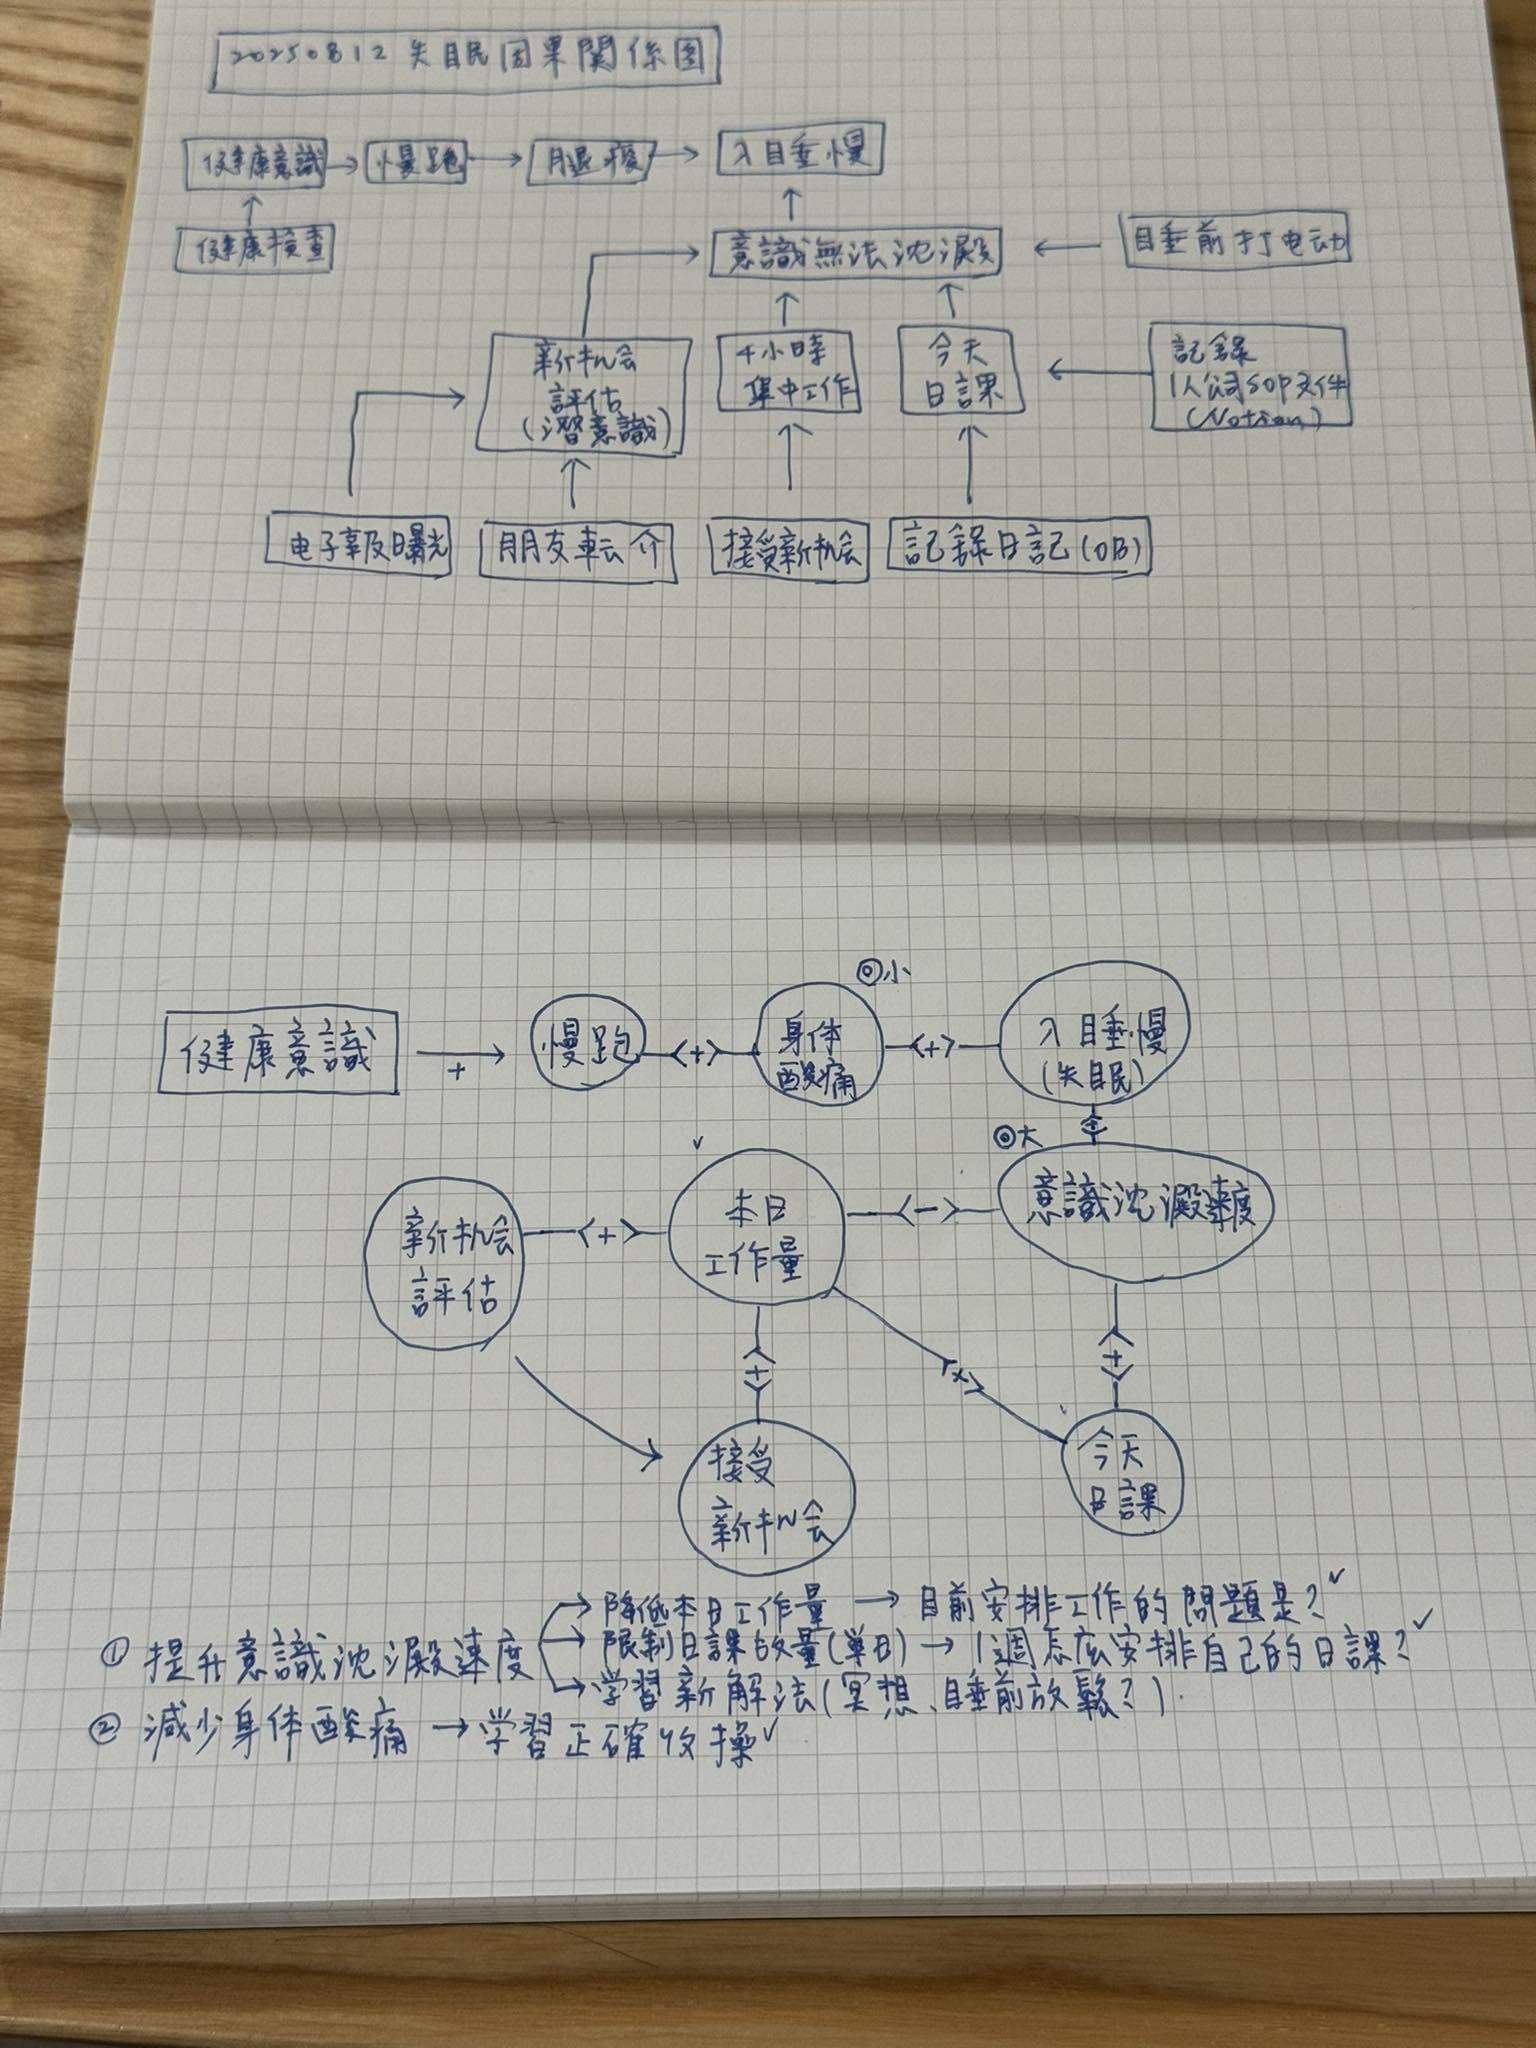 20250812 失眠因果関係図
健康意識
慢跑
腿痠
入睡慢
健康檢查
意識無法沈澱
睡前打电动
新机会
評估
(潛意識)
4小時
集中工作
今天
日課
記錄
1人公司SOP文件
(Notion)
电子報曝光
朋友転介
接受新机会
記錄日記(OB)
健康意識
+
慢跑
+
身体
酸痛
◎小
+
入睡慢
(失眠)
+
新机会
評估
+
本日
工作量
-
◎大
意識沈澱速度
+
+
+
接受
新机会
今天
日課
① 提升意識沈澱速度
降低本日工作量 → 目前安排工作的問題是?✓
限制日課放量(單日) → 1週怎広安排自己的日課?✓
学習新解法(冥想、睡前放鬆?).
② 減少身体酸痛 → 学習正確收操✓